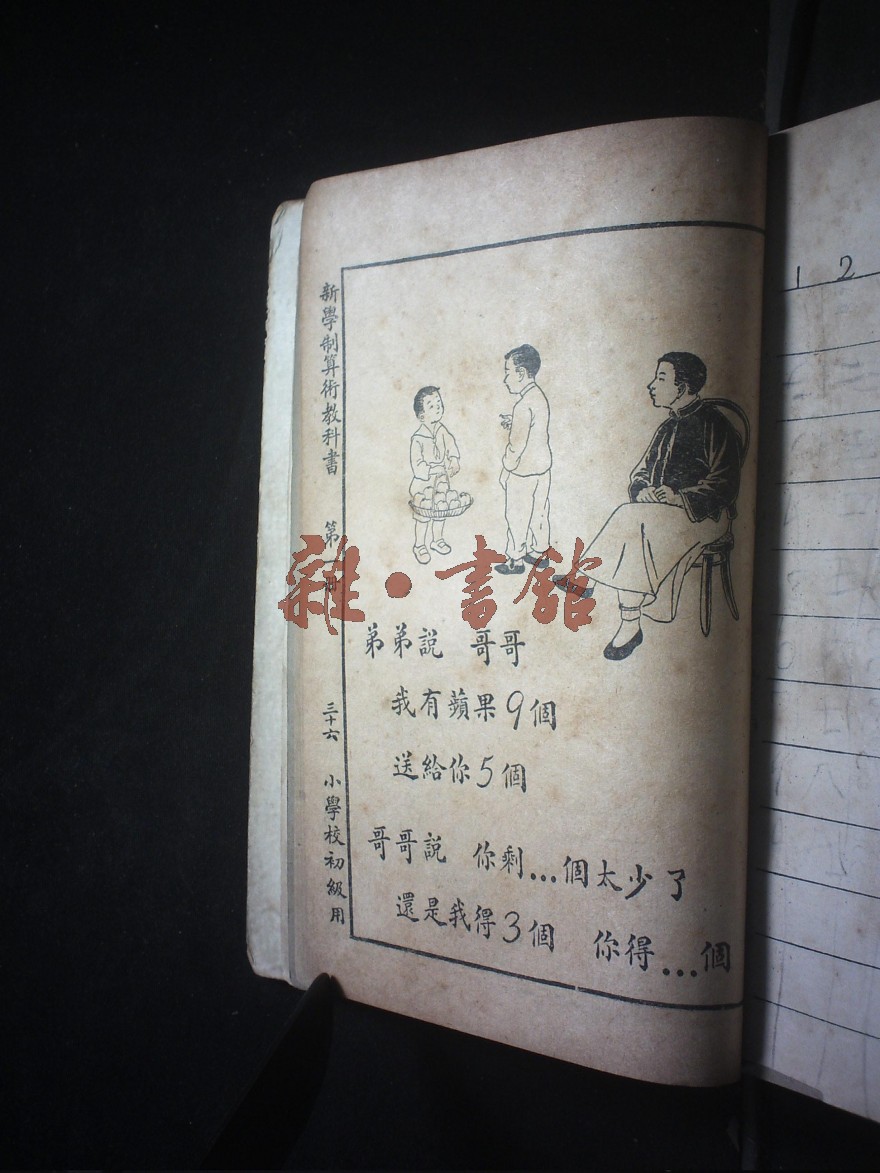 新學制算術教科書 第一冊 三十六 小學校初級用
弟弟說 哥哥
我有蘋果9個
送給你5個
哥哥說 你剩...個太少了
還是我得3個 你得...個
雜·書館
1 2